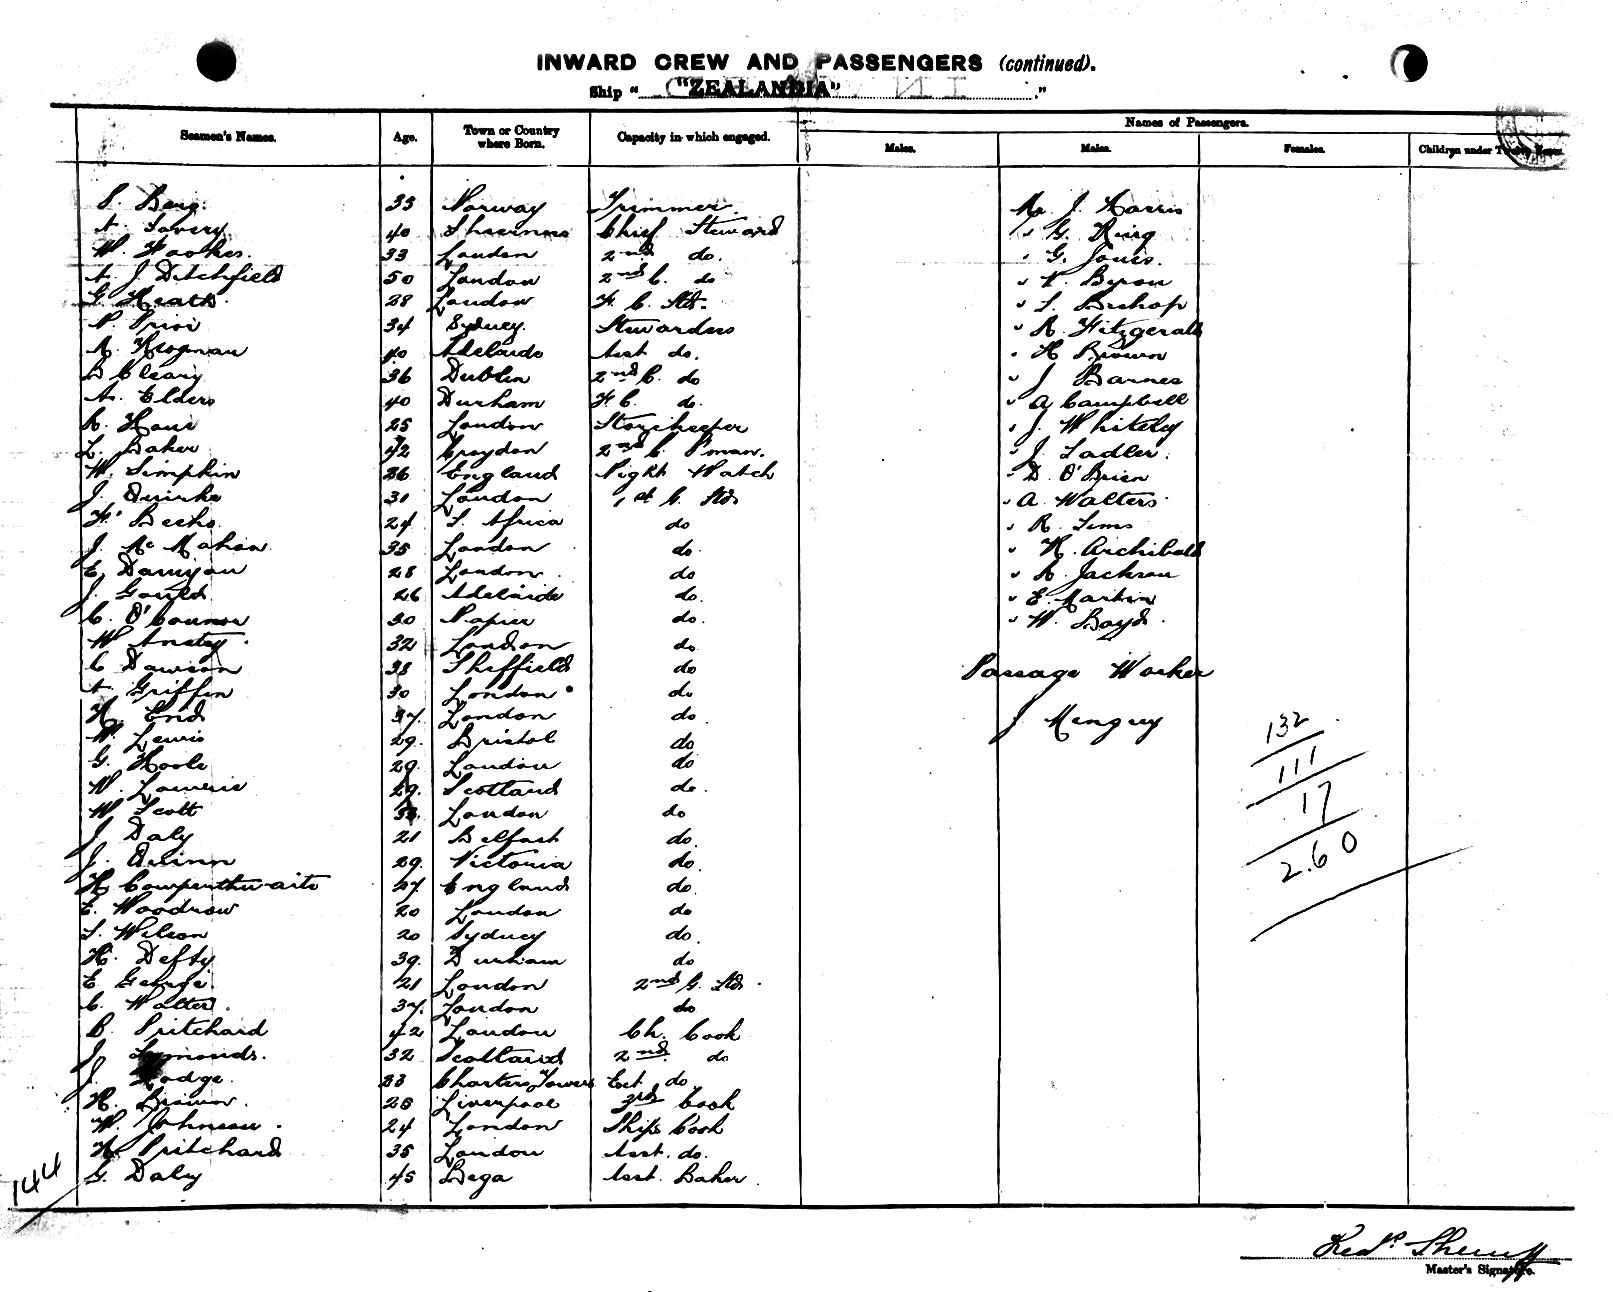 INWARD CREW AND PASSENGERS (continued).
Ship "ZEALANDIA"
Seamen's Names. Age. Town or Country where Born. Capacity in which engaged. Names of Passengers.
Males. Males. Females. Children under Twelve Years.
S. Berg. 33 Norway Trimmer. Mr. J. Harris
A. Savery 40 Sheerness Chief Steward " G. King
W. Hookes. 33 London 2nd do. " G. Jones.
A. J. Ditchfield 50 London 2nd C. do " Byron
G. Heath. 28 London F. C. Std. " S. Bishop
N. Prior 34 Sydney. Stewardess " R. Fitzgerald
A. Krogman 40 Adelaide Asst do. " H Brown
D Cleary 36 Dublin 2nd C. do " J Barnes
A. Elders 40 Durham F. C. do. " A Campbell
25 London Storekeeper " J. Whitely
L. Baker 42 Croydon 2nd C. P'man. " J. Sadler.
W. Simpkin 26 England Night Watch " D. O'Brien
J. Quirke 31 London 1st C. Std " A. Walters
24 S. Africa do " R. Sims
J. McMahon 35 London do. " H. Archibald
E. Damyon 28 London. do " R. Jackson
J. Gould 26 Adelaide do. " E. Martin
C. O'Connor 30 Napier do. " W. Boyd.
W Anstey. 32 London do
C Dawson 38 Sheffield do Passage Worker
A Griffin 30 London do
H. End 37. London do. J Menguy
W. Lewis 29. Bristol do 132
G. Hoole 29. London do 111
W. Lowrie 29. Scotland do. 17
W Scott 33. London do 2.60
J Daly 21 Belfast do.
J. Quinn 29. Victoria do.
H Cowperthwaite 27 England do.
E. Woodrow 20 London do
S. Wilson 20 Sydney do.
H. Defty 39. Durham do
E. George. 21 London 2nd G. Std.
C. Walter. 37. London do
B. Pritchard 42 London Ch. Cook
J. Symonds. 32 Scotland 2nd do
J. Lodge. 23 Charters Towers Ext. do.
H. Brown. 28 Liverpool 3rd Cook
W. Johnson. 24 London Ships Cook
H Pritchard 35 London Asst. do.
144 G. Daly 45 Bega Asst. Baker.
Master's Signature.